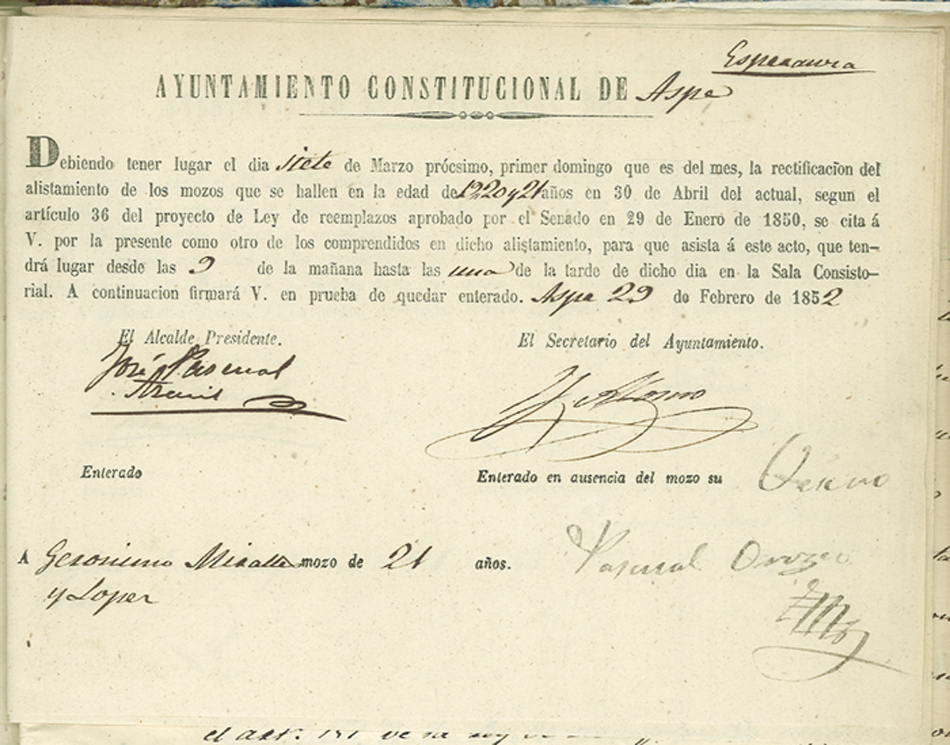 Esperanza
AYUNTAMIENTO CONSTITUCIONAL DE Aspe
Debiendo tener lugar el dia siete de Marzo prócsimo, primer domingo que es del mes, la rectificacion del
alistamiento de los mozos que se hallen en la edad de 20 y 21 años en 30 de Abril del actual, segun el
artículo 36 del proyecto de Ley de reemplazos aprobado por el Senado en 29 de Enero de 1850, se cita á
V. por la presente como otro de los comprendidos en dicho alistamiento, para que asista á este acto, que ten-
drá lugar desde las 9 de la mañana hasta las una de la tarde de dicho dia en la Sala Consisto-
rial. A continuacion firmará V. en prueba de quedar enterado. Aspe 29 de Febrero de 1852
El Alcalde Presidente. El Secretario del Ayuntamiento.
José Pascual
Alonso
Enterado Enterado en ausencia del mozo su Vecino
A Geronimo Miralles mozo de 21 años. Pascual
y Lopez